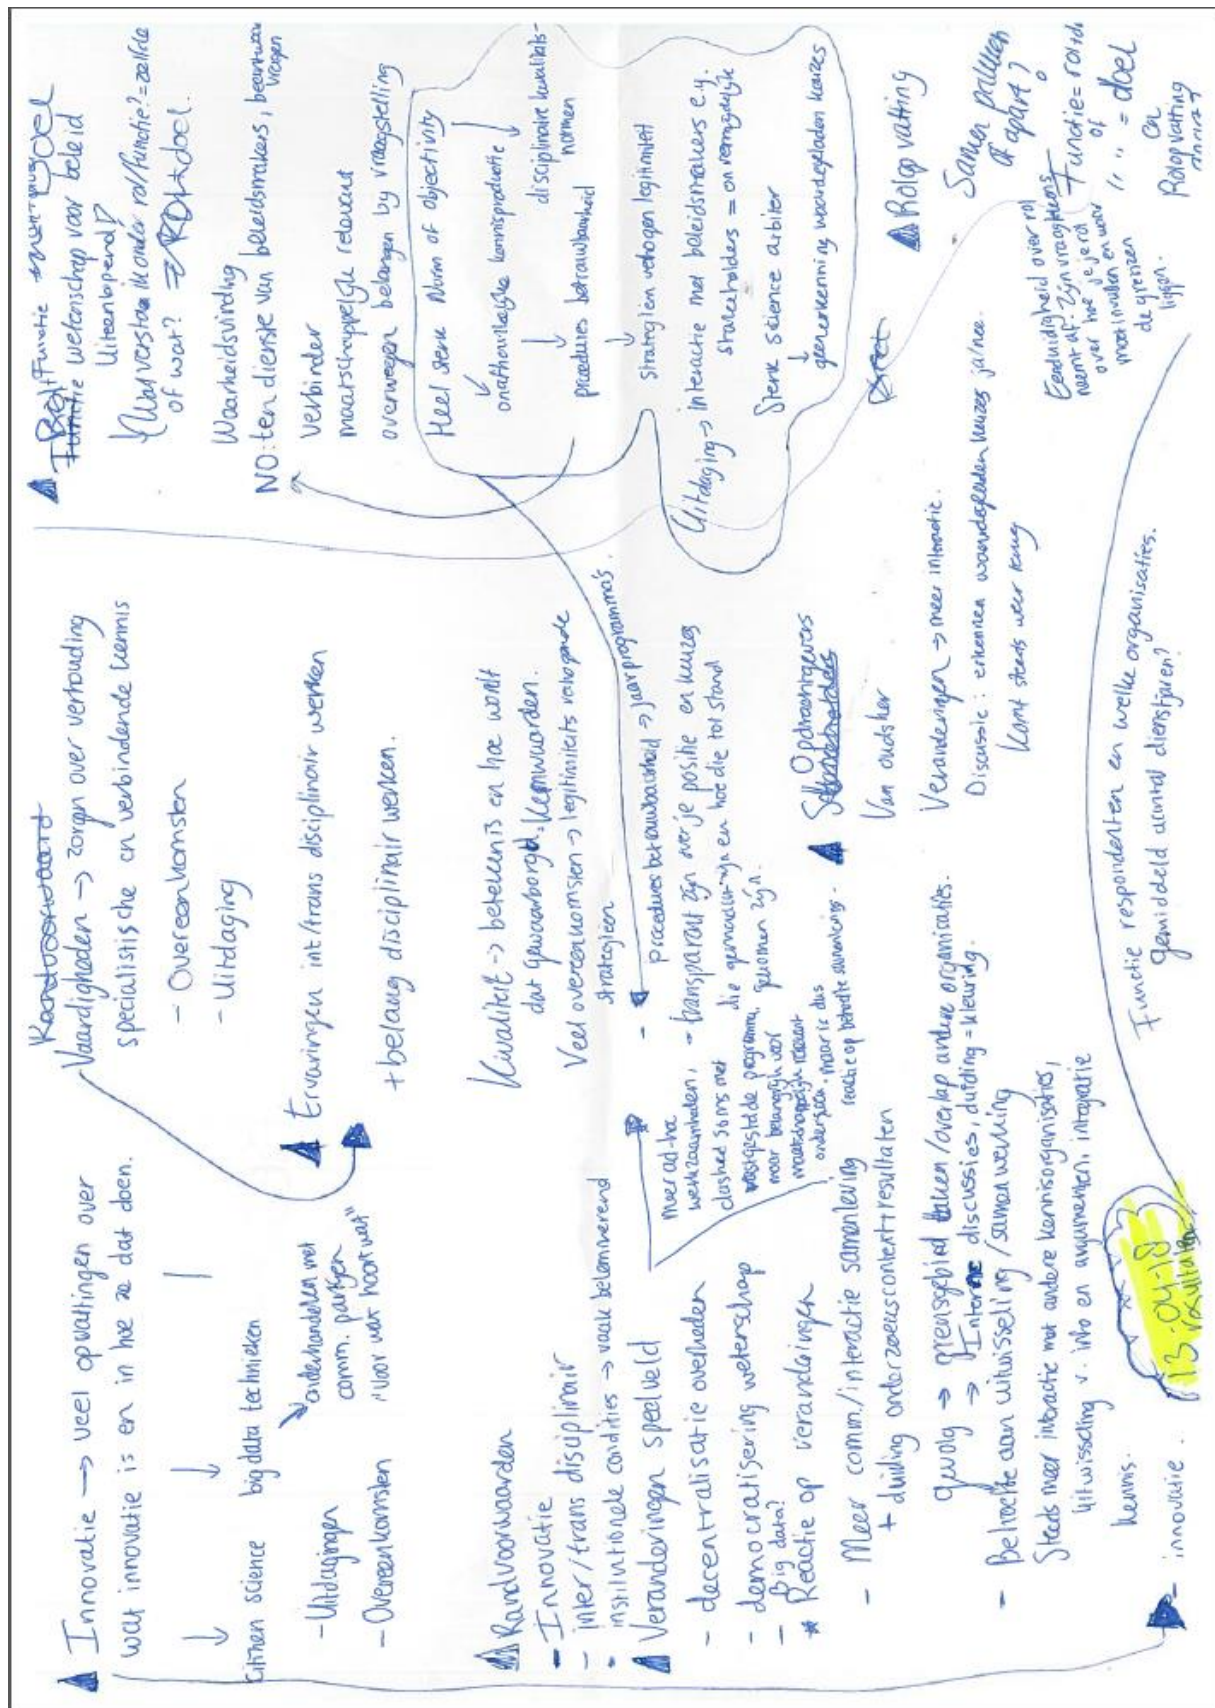 Innovatie → veel opvattingen over
wat innovatie is en in hoe ze dat doen.
citizen science
big data technieken
- Uitdagingen
- Overeenkomsten
onderhandelen met
comm. partijen
"voor wat hoort wat"
Randvoorwaarden
- Innovatie
- inter/trans disciplinair
- institutionele condities → vaak belemmerend
Veranderingen speelveld
- decentralisatie overheden
- democratisering wetenschap
- Big data?
* Reactie op veranderingen
- Meer comm./interactie samenleving
+ duiding onderzoekscontext+resultaten
gevolg → grensgebied taken/overlap andere organisaties.
→ Interne discussies, duiding = kleuring.
- Behoefte aan uitwisseling/samenwerking
Steeds meer interactie met andere kennisorganisaties,
uitwisseling v. info en argumenten, integratie
kennis.
- innovatie.
13-04-18
resultaten
Vaardigheden → zorgen over verhouding
specialistische en verbindende kennis
- Overeenkomsten
- Uitdaging
Ervaringen int/trans disciplinair werken
+ belang disciplinair werken.
Kwaliteit → betekenis en hoe wordt
dat gewaarborgd. Kernwaarden.
Veel overeenkomsten → legitimiteits verhogende
strategieën
- procedures betrouwbaarheid → jaarprogramma's.
- transparant zijn over je positie en keuzes
die gemaakt zijn en hoe die tot stand
gekomen zijn.
meer ad-hoc
werkzaamheden,
clashed soms met
vastgestelde programma,
maar belangrijk voor
maatschappelijk relevant
onderzoek. maar is dus
reactie op behoefte samenleving.
Opdrachtgevers
Stakeholders
Van oudsher
Veranderingen → meer interactie.
Discussie: erkennen waardegeladen keuzes ja/nee.
Komt steeds weer terug
Functie respondenten en welke organisaties.
Gemiddeld aantal dienstjaren?
Functie
wetenschap voor beleid
Uiteenlopend!
Wat versta ik onder rol/functie? = zelfde
of wat? = doel.
Waarheidsvinding
NO: ten dienste van beleidsmakers, beantwoor
vragen
Verbinder
maatschappelijke relevant
overwegen belangen bij vraagstelling
Heel sterk Norm of objectivity
onafhankelijke kennisproductie
disciplinaire kwaliteits-
normen
procedures betrouwbaarheid
strategieën verhogen legitimiteit
Uitdaging → interactie met beleidsmakers e.g.
stakeholders = onvermijdelijk
Sterk science arbiter
geen erkenning waardegeladen keuzes
Rolopvatting
Samen pakken
of apart?
Eenduidigheid over rol
neemt af. Zijn vraagtekens
over hoe je je rol
moet invullen en waar
de grenzen
liggen.
Functie = rol
of
" " = doel
en
Rolopvatting
apart